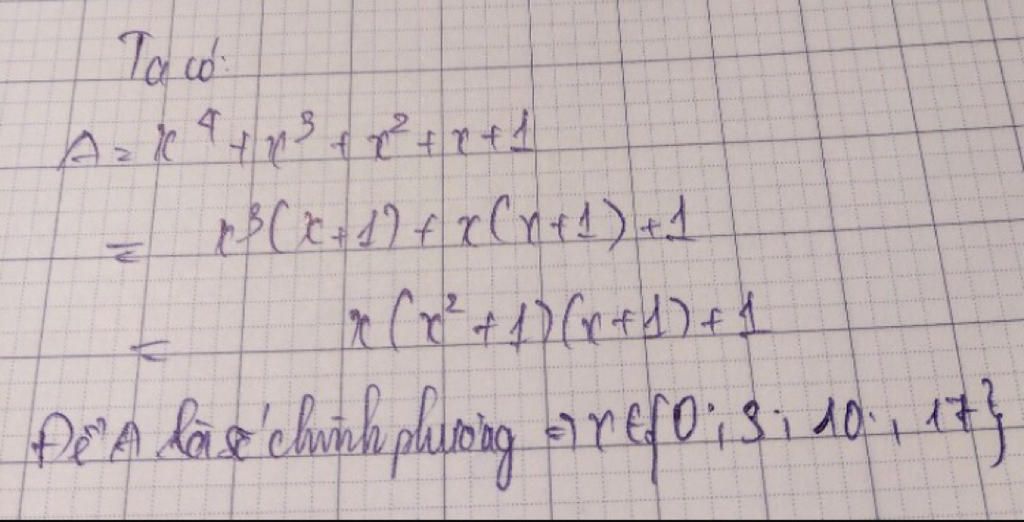 Ta có:
A = x⁴ + x³ + x² + x + 1
= x³(x+1) + x(x+1) + 1
= x(x² + 1)(x+1) + 1
Để A là số chính phương => x ∈ {0; 3; 10; 17}